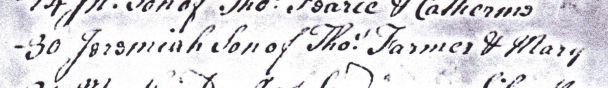 14 Jn. Son of Tho: Pearce & Catherine
-30 Jeremiah Son of Tho: Farmer & Mary